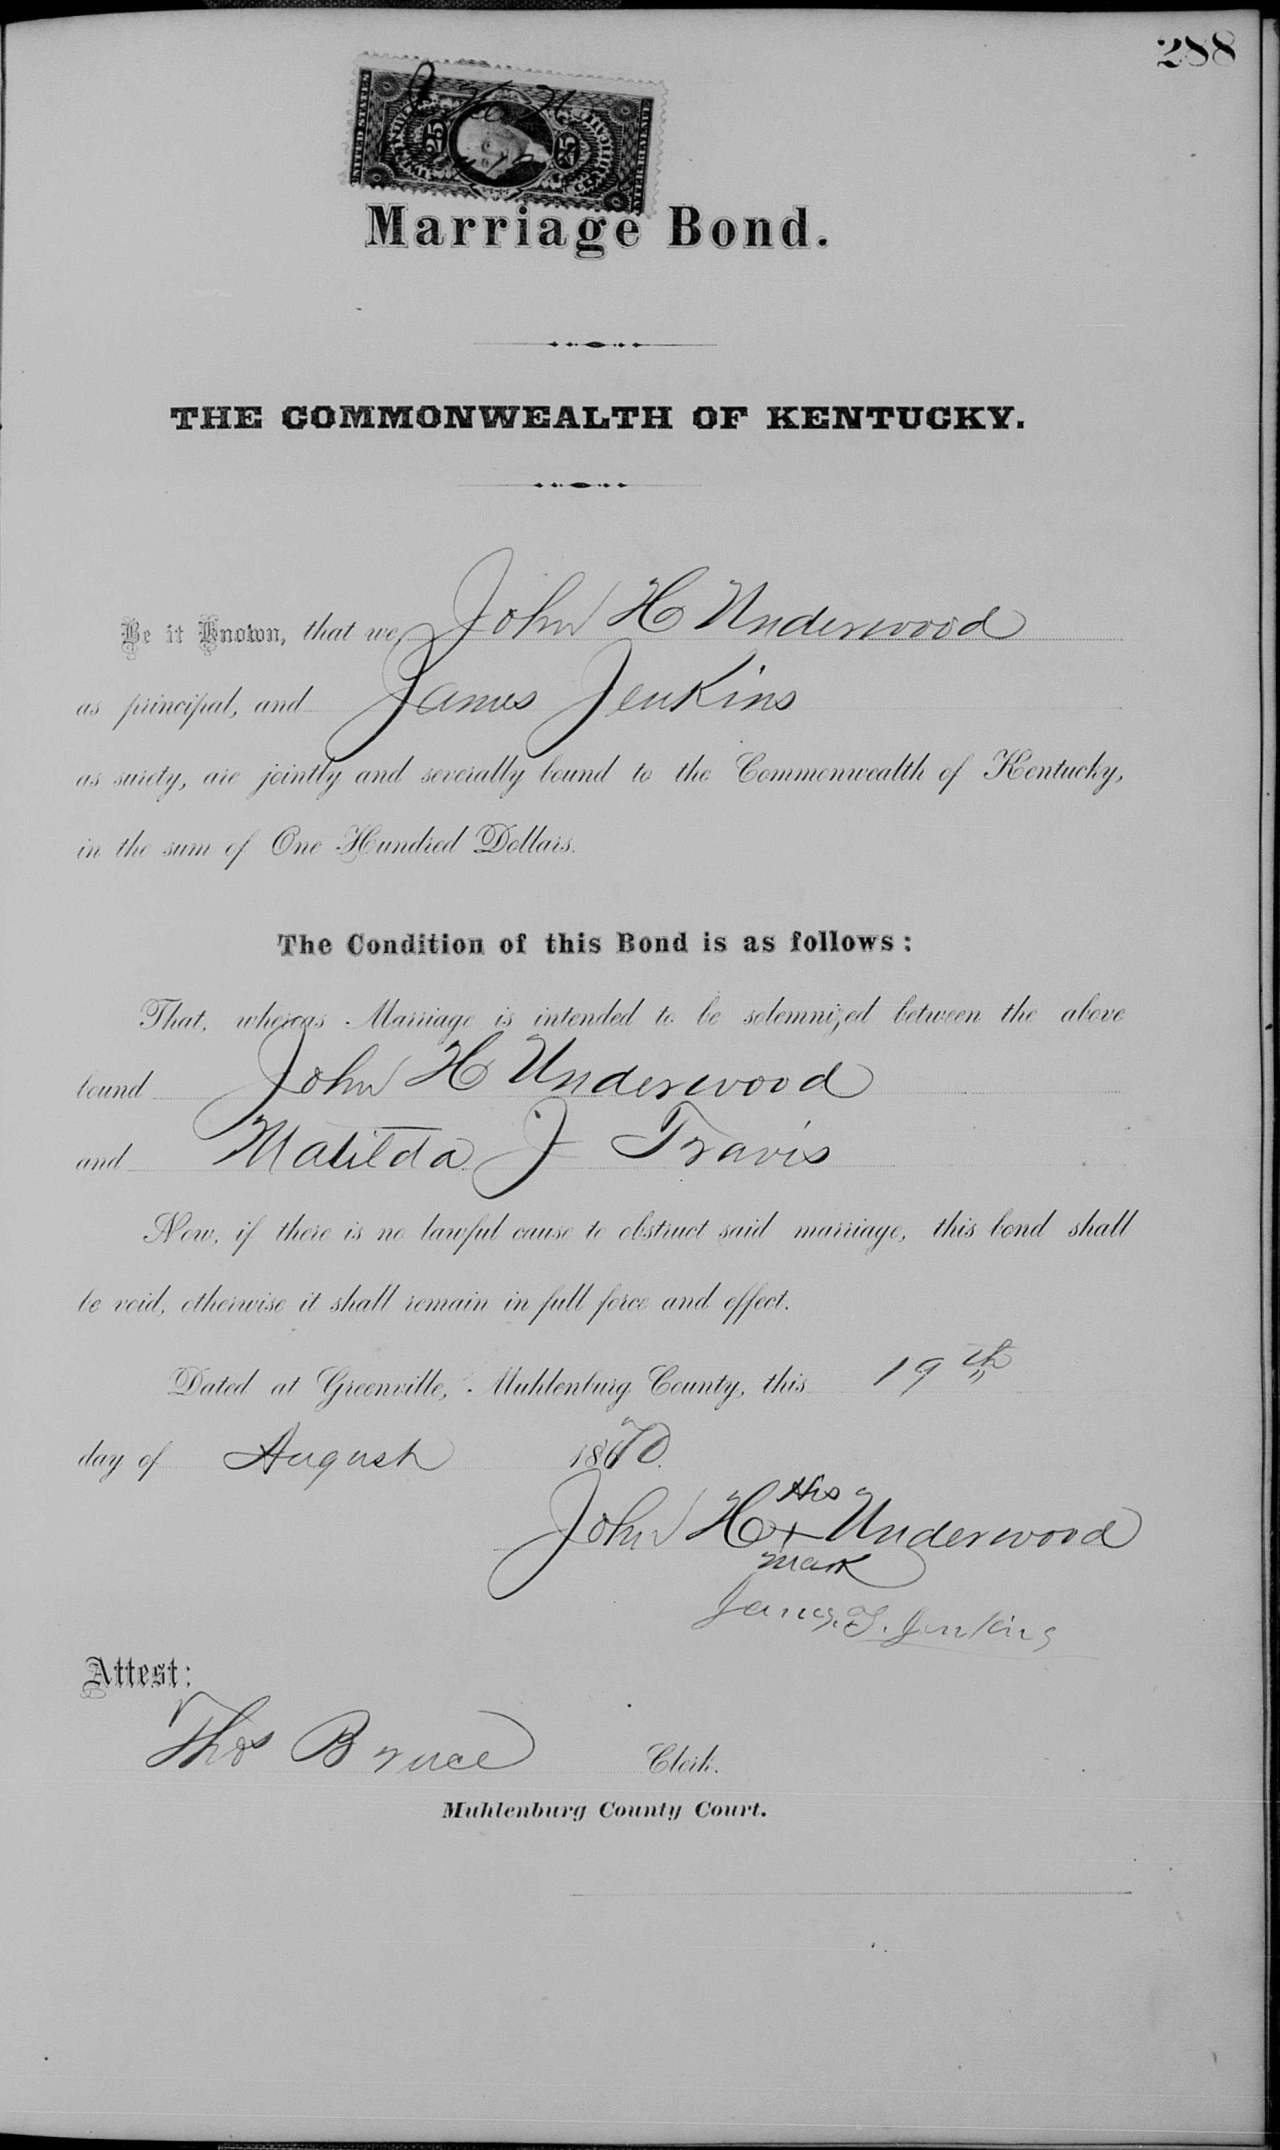 288
UNITED STATES
25
25
INTER REVENUE
Marriage Bond.
THE COMMONWEALTH OF KENTUCKY.
Be it Known, that we, John H Underwood
as principal, and James Jenkins
as surety, are jointly and severally bound to the Commonwealth of Kentucky,
in the sum of One Hundred Dollars.
The Condition of this Bond is as follows:
That, whereas Marriage is intended to be solemnized between the above
bound John H Underwood
and Matilda J Travis
Now, if there is no lawful cause to obstruct said marriage, this bond shall
be void, otherwise it shall remain in full force and effect.
Dated at Greenville, Muhlenburg County, this 19th
day of August 1870.
his
John H + Underwood
mark
James T. Jenkins
Attest:
Thos Bruce Clerk.
Muhlenburg County Court.